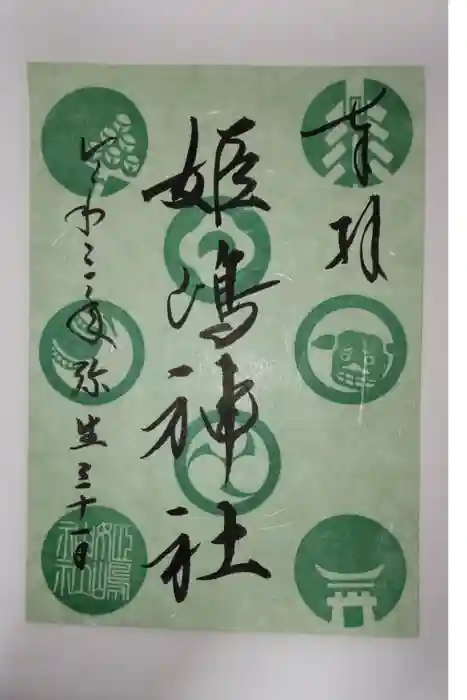 奉拝
姫嶋神社
令和三年弥生三十一日
姫嶋神社